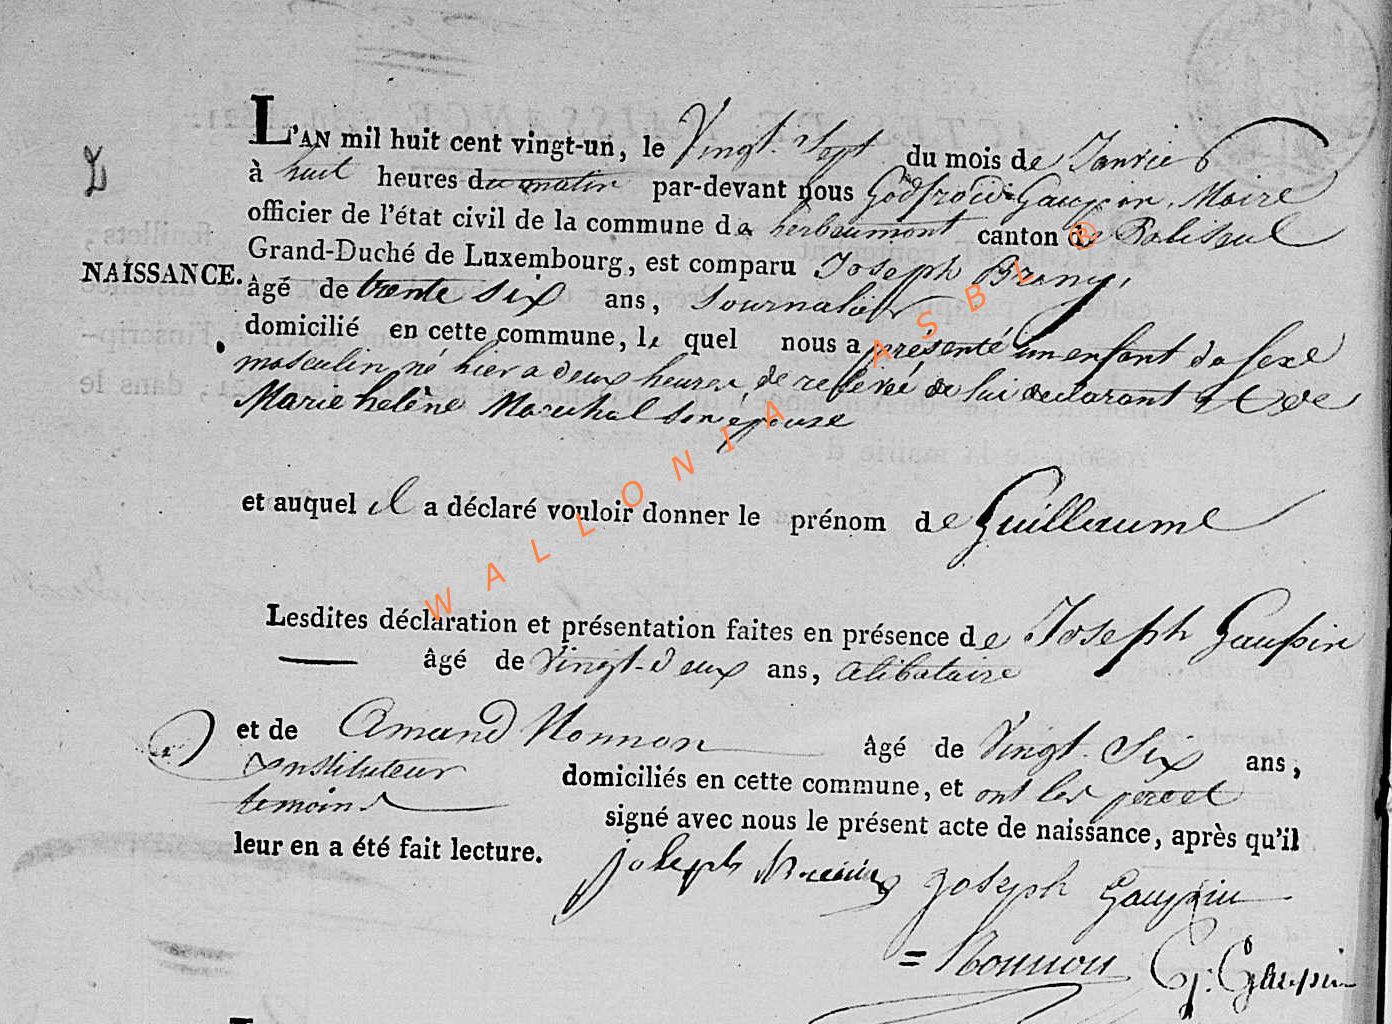 L'AN mil huit cent vingt-un, le Vingt Sept du mois de Janvier
à huit heures du matin par-devant nous Godfroid Gaupin, Maire
officier de l'état civil de la commune de herbeumont canton de Paliseul
Grand-Duché de Luxembourg, est comparu Joseph Brany,
NAISSANCE.
âgé de trente six ans, Journalier
domicilié en cette commune, le quel nous a présenté un enfant de sexe
masculin né hier a deux heures de relevée de lui declarant et de
Marie helène Marichal son épouse
et auquel il a déclaré vouloir donner le prénom de Guillaume
Lesdites déclaration et présentation faites en présence de Joseph Gaupin
âgé de Vingt-deux ans, Celibataire
et de Amand Nonnon âgé de Vingt Six ans,
instituteur domiciliés en cette commune, et ont les
temoins signé avec nous le présent acte de naissance, après qu'il
leur en a été fait lecture.
joseph joseph Gaupin
= Nonnon G: Gaupin
WALLONIA ASBL ®